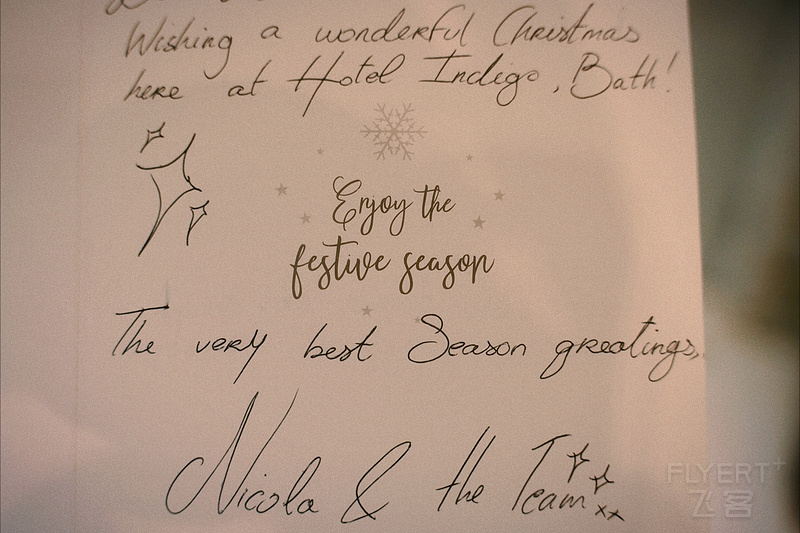 Wishing a wonderful Christmas
here at Hotel Indigo, Bath!
Enjoy the
festive season
The very best Season greatings,
Nicola & the Team xx
FLYERT+
飞客